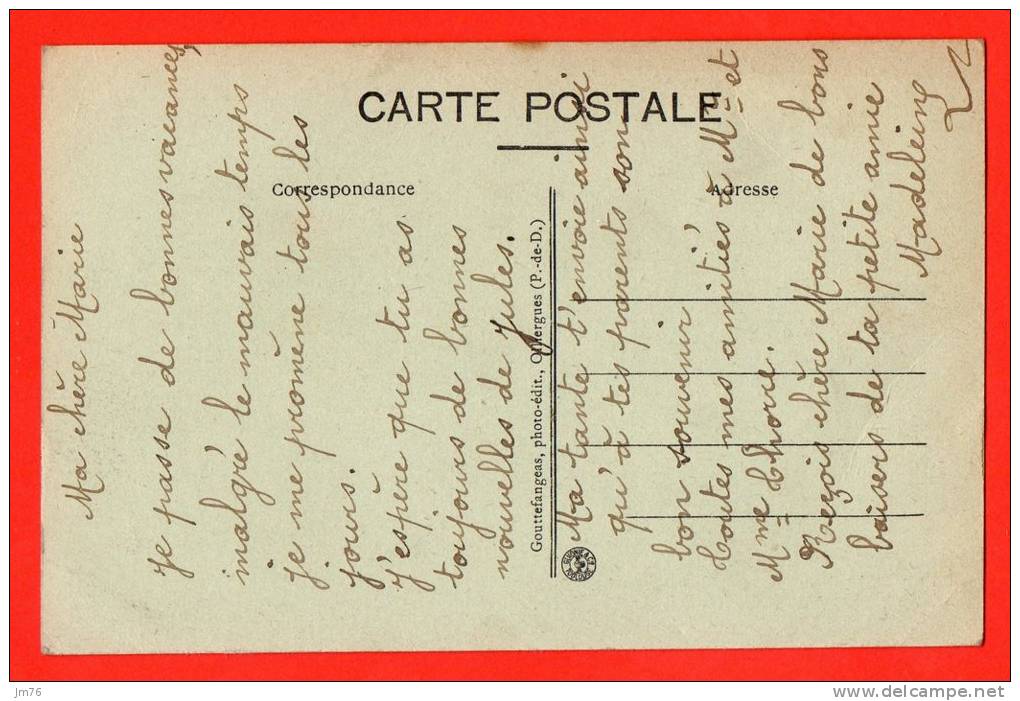 CARTE POSTALE
Correspondance
Adresse
Ma chère Marie
Je passe de bonnes vacances,
malgré le mauvais temps
je me promène tous les
jours.
J'espère que tu as
toujours de bonnes
nouvelles de Jules.
Gouttefangeas, photo-édit., Olliergues (P.-de-D.)
Ma tante t'envoie ainsi
qu'à tes parents son
bon souvenir
Toutes mes amitiés à Mr et
Mme
Reçois chère Marie de bons
baisers de ta petite amie
Madeleine
jm76
www.delcampe.net